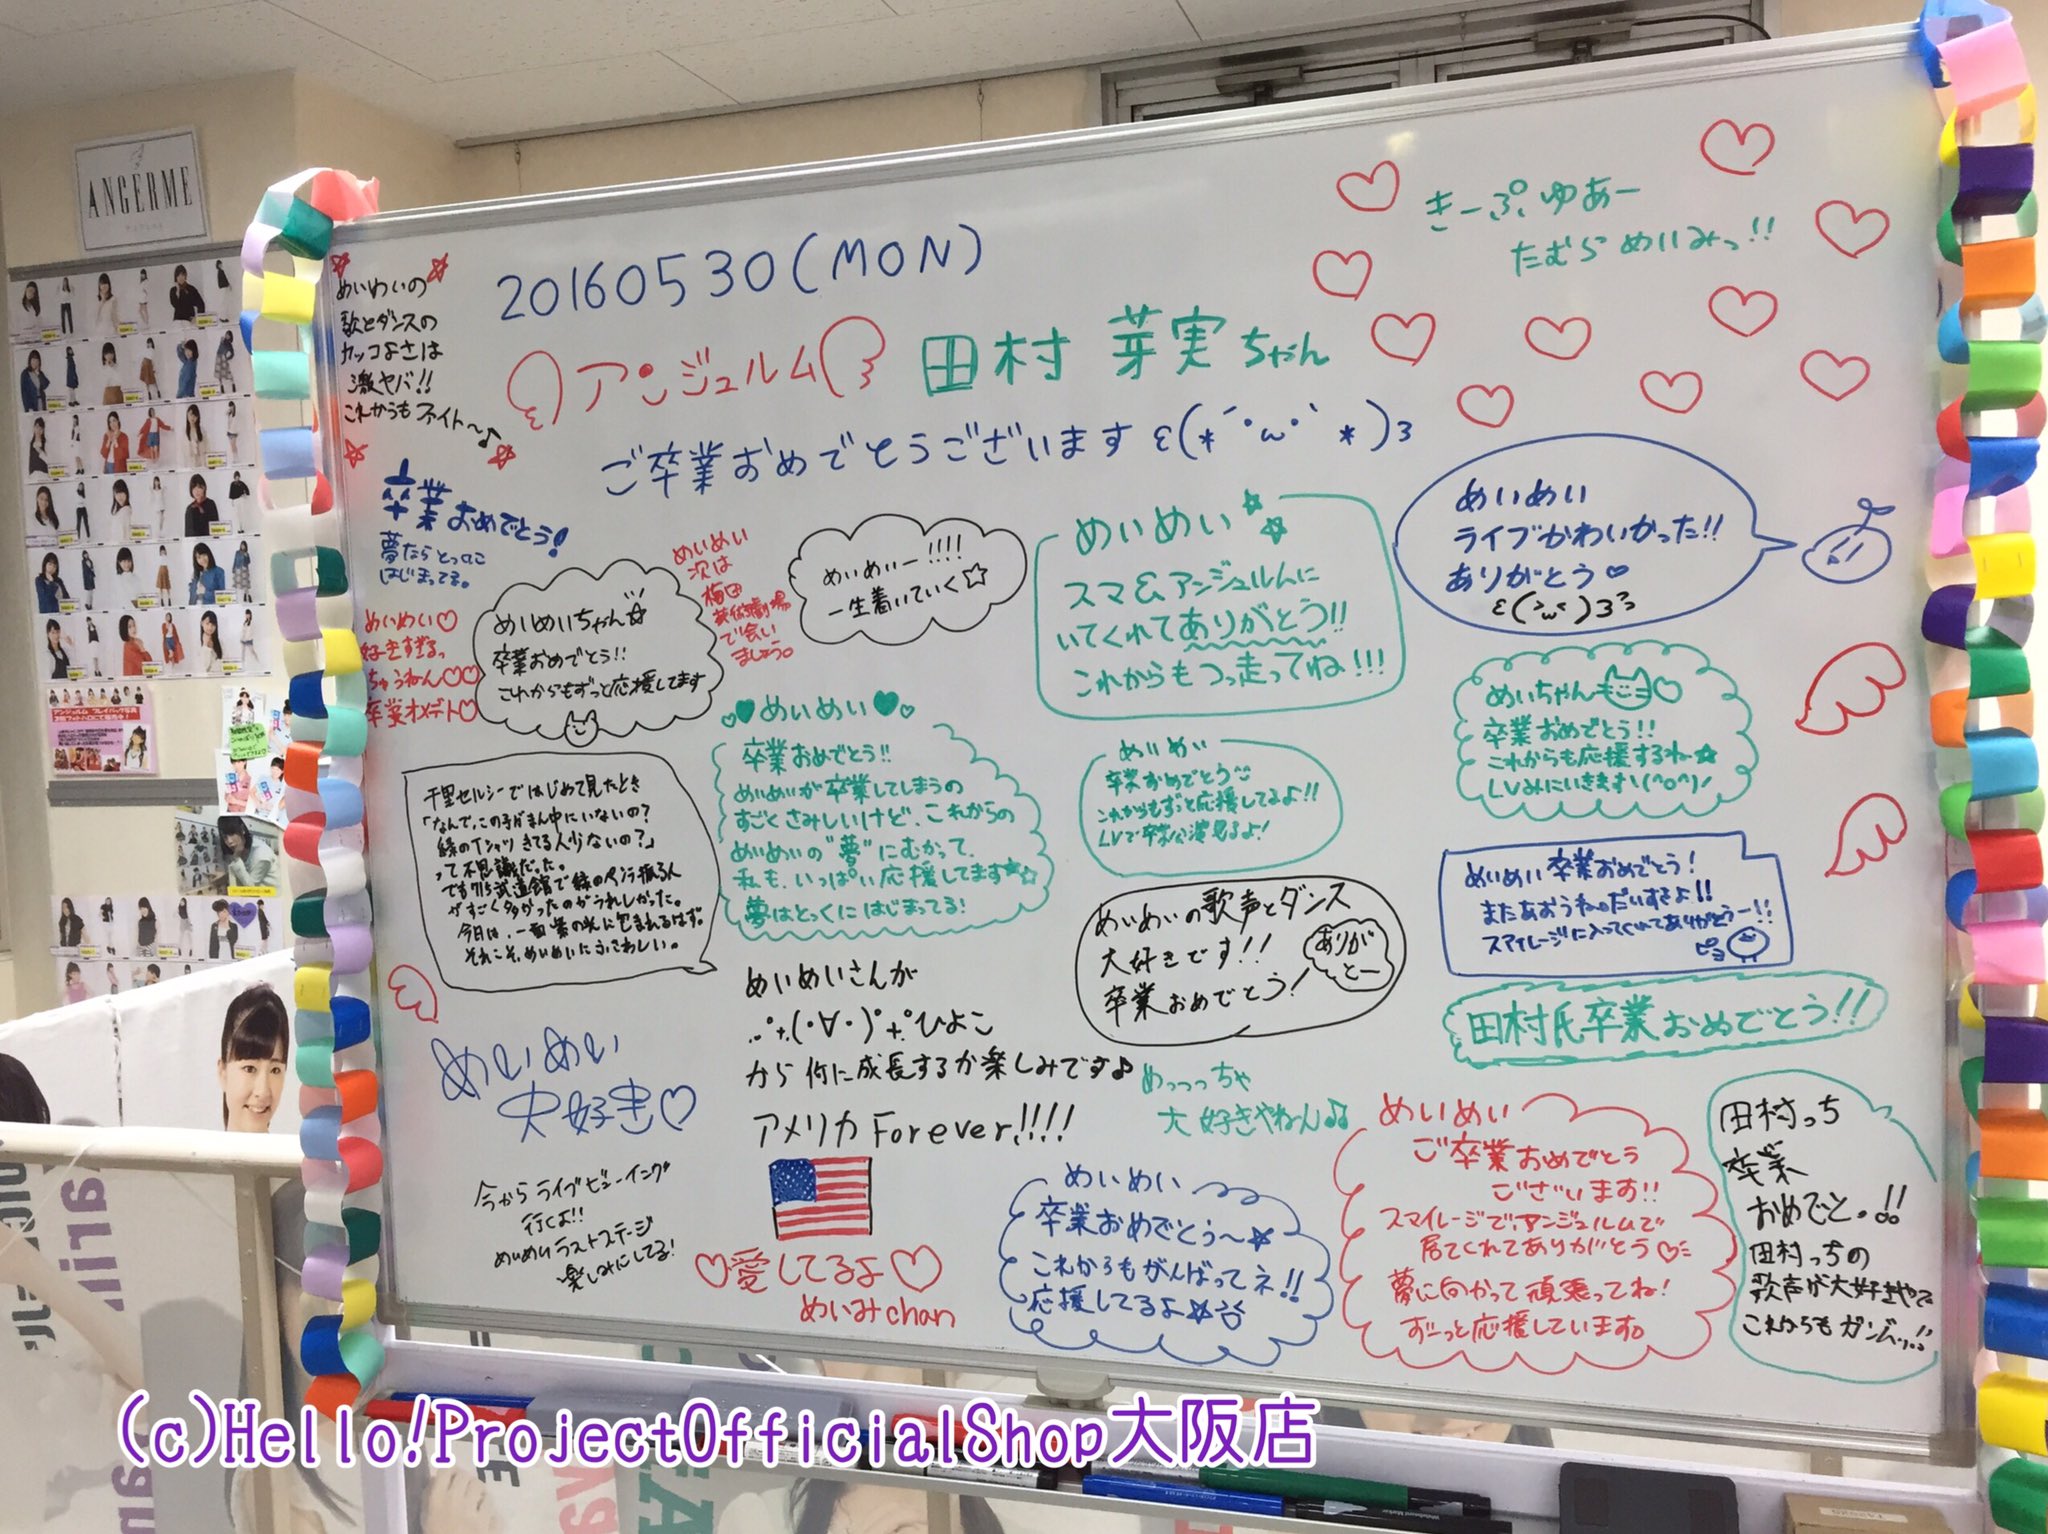 ANGERME
20160530(MON)
アンジュルム 田村 芽実ちゃん
ご卒業おめでとうございます ε(*´・ω・`*)3
きーぷ ゆあー
たむら めいみっ!!
めいめいの
歌とダンスの
カッコよさは
激ヤバ!!
これからもファイト〜♪
卒業おめでとう!
夢ならとっくに
はじまってる。
めいめい♡
好きすぎるっ
ちゅうねん♡♡
卒業オメデト♡
めいめいちゃん☆
卒業おめでとう!!
これからもずっと応援してます
めいめい
次は
梅田
芸術劇場
で会い
ましょう。
めいめいー!!!!
一生着いていく☆
めいめい☆
スマ&アンジュルムに
いてくれてありがとう!!
これからもつっ走ってね!!!
めいめい
ライブかわいかった!!
ありがとう♡
めいちゃん
卒業おめでとう!!
これからも応援するね〜☆
LVみにいきます\(^o^)/
♥めいめい♥
卒業おめでとう!!
めいめいが卒業してしまうの
すごくさみしいけど、これからの
めいめいの"夢"にむかって、
私も、いっぱい応援してます☆
夢はとっくにはじまってる!
めいめい
卒業おめでとう
これからもずっと応援してるよ!!
LVで卒業公演見るよ!
千里セルシーではじめて見たとき
「なんで、この子がまん中にいないの?
緑のTシャツきてる人少ないの?」
って不思議だった。
です 7/15武道館で緑のペンラ振る人
がすごく多かったのがうれしかった。
今日は、一面紫の光に包まれるはず。
それこそ、めいめいにふさわしい。
めいめい卒業おめでとう!
またあおうね。だいすきよ!!
スマイレージに入ってくれてありがとうー!!
ピヨ
めいめいの歌声とダンス
大好きです!!
卒業おめでとう!
ありが
とー
田村氏卒業おめでとう!!
めいめいさんが
(・∀・) ひよこ
から何に成長するか楽しみです♪
めいめい
大好き♡
めっっっちゃ
大好きやねん♪♪
アメリカ Forever!!!!
今からライブビューイング
行くよ!!
めいめいラストステージ
楽しみにしてる!
♡愛してるよ♡
めいみchan
めいめい
卒業おめでとう〜☆
これからもがんばってネ!!
応援してるよ☆
めいめい
ご卒業おめでとう
ございます!!
スマイレージで、アンジュルムで
居てくれてありがとう♡
夢に向かって頑張ってね!
ずーっと応援しています。
田村っち
卒業
おめでと。!!
田村っちの
歌声が大好きやで
これからもガンバッ!!
(c)Hello!ProjectOfficialShop大阪店